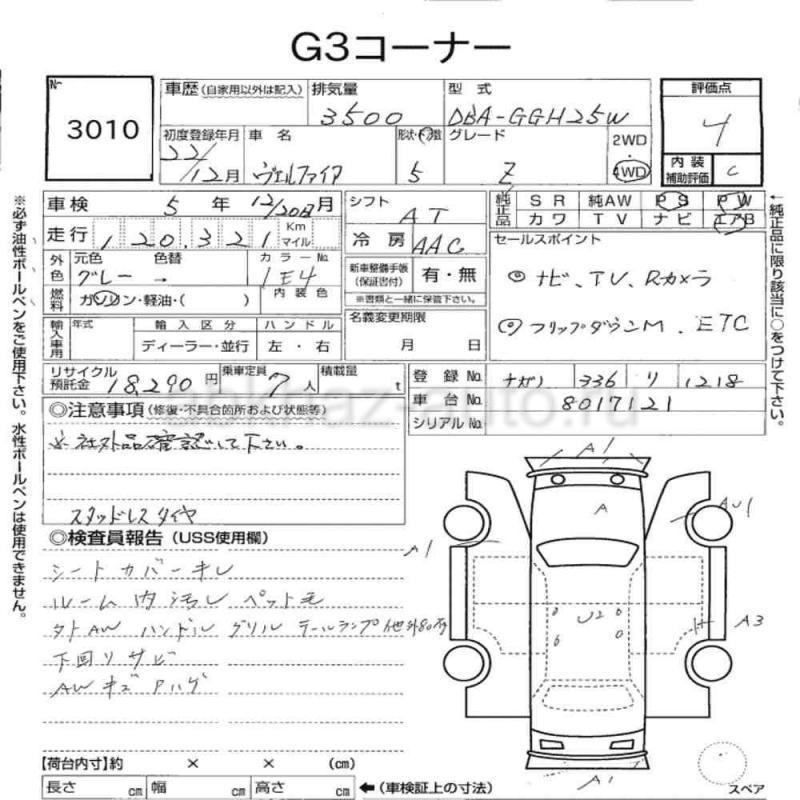 G3コーナー
No.
3010
車歴 (自家用以外は記入)
排気量
3500
型式
DBA-GGH25W
評価点
4
初度登録年月
22/12月
車名
ヴェルファイア
形状・ドア数
5
グレード
Z
2WD
・
4WD
内装
補助評価
C
車検 5年 12/20日月
シフト
AT
純正品
SR 純AW PS PW
カワ TV ナビ エアB
走行 120,321 Km
マイル
冷房
AAC
セールスポイント
◎ ナビ、TV、Rカメラ
◎ フリップダウンM、ETC
外色
元色
色替
グレー →
カラーNo.
1E4
燃料
ガソリン・軽油・( )
内装色
新車整備手帳
(保証書付)
有・無
※書類と一緒に保管下さい。
輸入車用
年式
輸入区分
ハンドル
ディーラー・並行
左・右
名義変更期限
月 日
リサイクル
預託金
18,290 円
乗車定員
7人
積載量
t
登録No.
ナガノ 336 リ 1218
車台No.
8017121
シリアルNo.
◎注意事項 (修復・不具合箇所および状態等)
※社外品確認して下さい。
スタッドレスタイヤ
◎検査員報告 (USS使用欄)
シートカバーキレ
ルーム内汚レ ペット毛
タトAW ハンドル グリル テールランプ他外80万
下回りサビ
AWキズ Pハゲ
【荷台内寸】約 × × (cm)
長さ cm 幅 cm 高さ cm ←(車検証上の寸法)
A1
A
AU1
A1
U2
A3
A1
スペア
※必ず油性ボールペンをご使用下さい。水性ボールペンは使用できません。
←純正品に限り該当に○をつけて下さい。
abkhaz-auto.ru